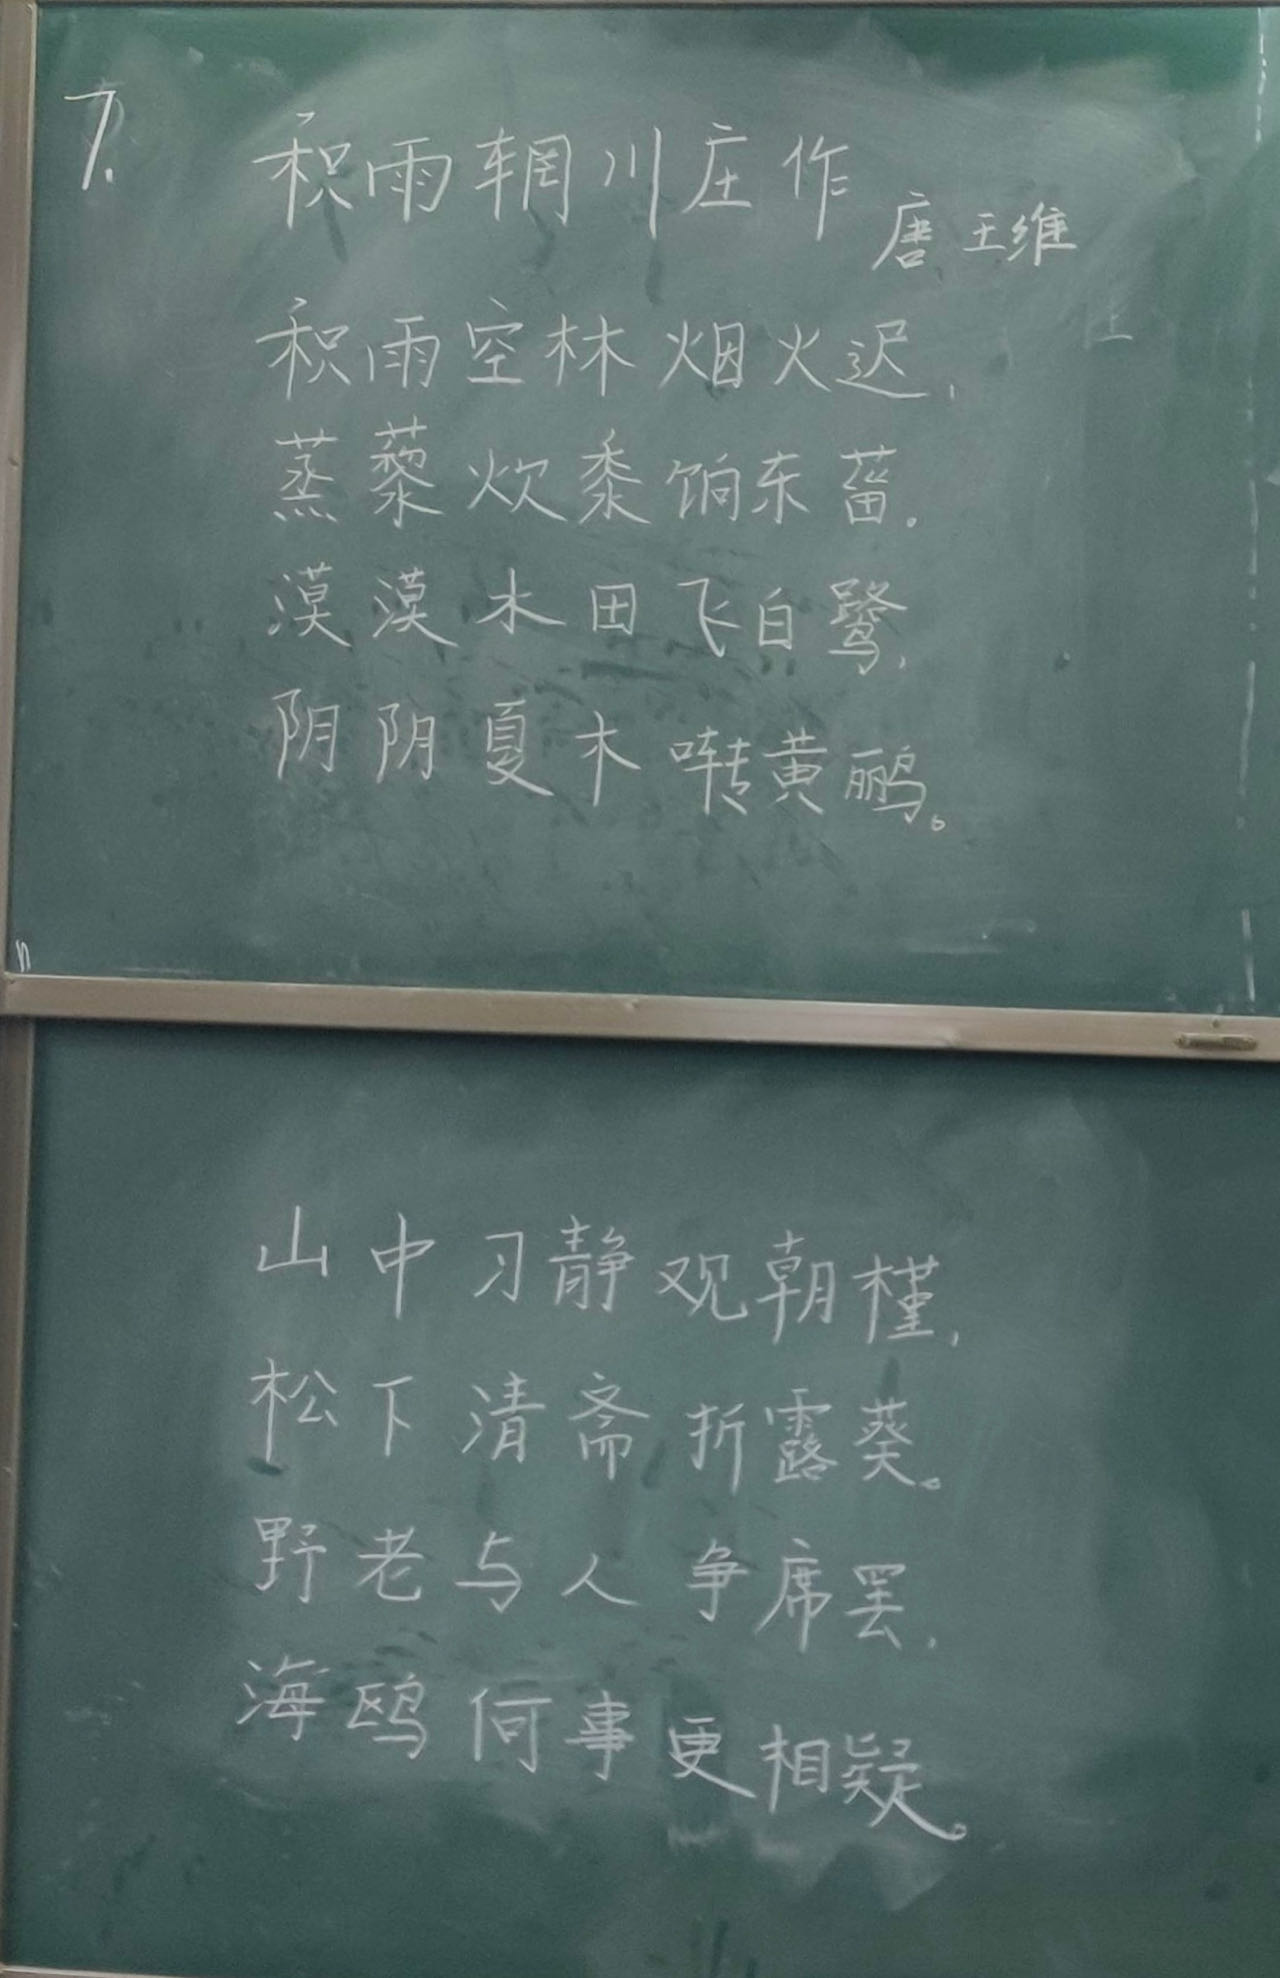 7.
积雨辋川庄作
唐 王维
积雨空林烟火迟,
蒸藜炊黍饷东菑.
漠漠水田飞白鹭,
阴阴夏木啭黄鹂。
山中习静观朝槿,
松下清斋折露葵。
野老与人争席罢,
海鸥何事更相疑。